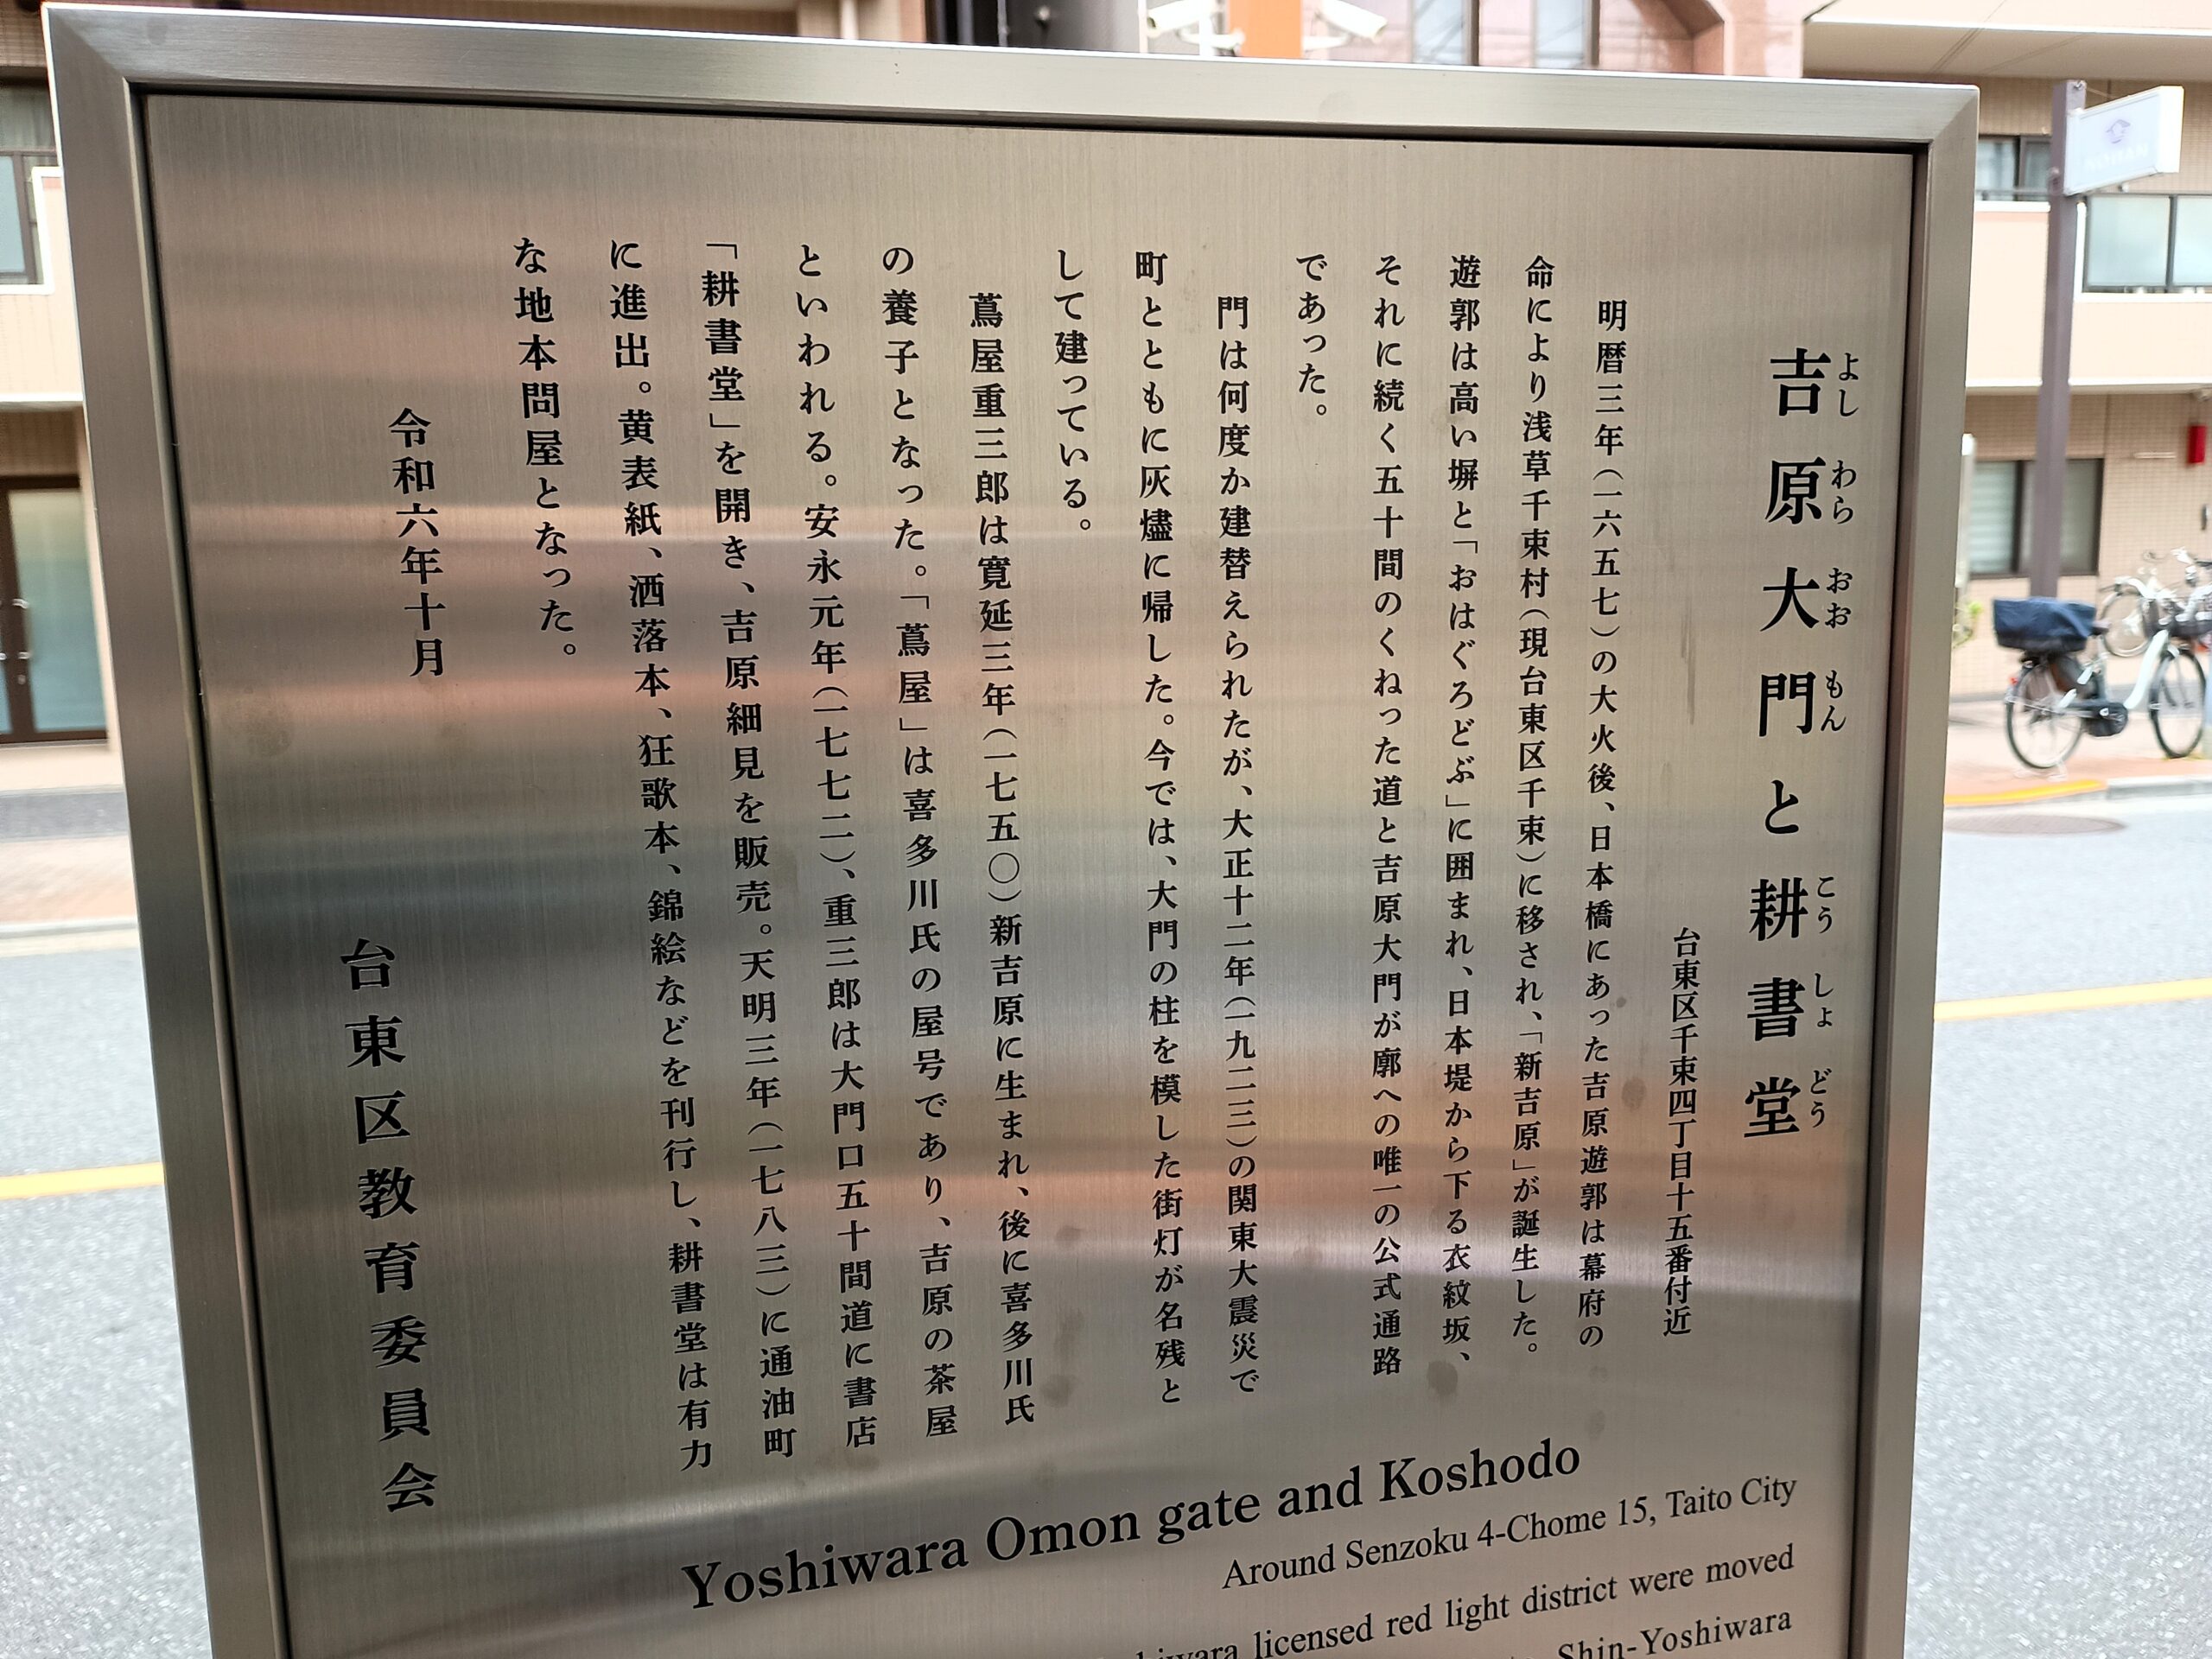 吉原大門と耕書堂
よし わら おお もん こう しょ どう
台東区千束四丁目十五番付近
明暦三年(一六五七)の大火後、日本橋にあった吉原遊郭は幕府の
命により浅草千束村(現台東区千束)に移され、「新吉原」が誕生した。
遊郭は高い塀と「おはぐろどぶ」に囲まれ、日本堤から下る衣紋坂、
それに続く五十間のくねった道と吉原大門が廓への唯一の公式通路
であった。
門は何度か建替えられたが、大正十二年(一九二三)の関東大震災で
町とともに灰燼に帰した。今では、大門の柱を模した街灯が名残と
して建っている。
蔦屋重三郎は寛延三年(一七五〇)新吉原に生まれ、後に喜多川氏
の養子となった。「蔦屋」は喜多川氏の屋号であり、吉原の茶屋
といわれる。安永元年(一七七二)、重三郎は大門口五十間道に書店
「耕書堂」を開き、吉原細見を販売。天明三年(一七八三)に通油町
に進出。黄表紙、洒落本、狂歌本、錦絵などを刊行し、耕書堂は有力
な地本問屋となった。
令和六年十月
台東区教育委員会
Yoshiwara Omon gate and Koshodo
Around Senzoku 4-Chome 15, Taito City
licensed red light district were moved
Shin-Yoshiwara